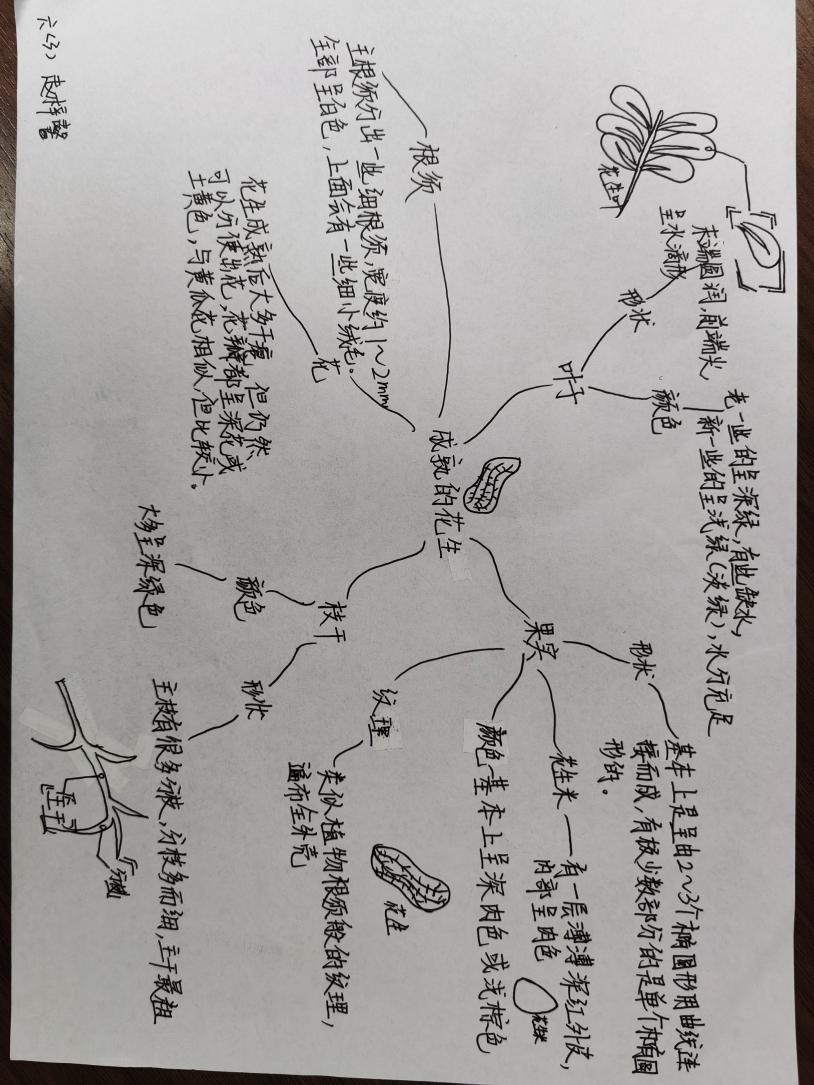 六(3)
成熟的花生
根须
主根须分出一些细根须,宽度约1~2mm,
全部呈白色,上面会有一些细小绒毛。
花
花生成熟后大多干瘪,但仍然
可以分便出花,花瓣都呈深花或
土黄色,与黄瓜花相似,但比较小。
叶子
形状
末端圆润,前端尖
呈水滴形
花生叶
颜色
老一些的呈深绿,有些缺水,
新一些的呈浅绿(淡绿),水分充足
果实
形状
基本上是呈由2~3个椭圆形用曲线连
接而成,有极少数部分的是单个椭圆
形的。
花生米——有一层薄薄深红外皮,
内部呈肉色
花生米
颜色-基本上呈深肉色或浅棕色
纹理
类似植物根须般的纹理,
遍布全外壳
花生
枝干
颜色
大多呈深绿色
形状
主枝有很多分枝,分枝多而细,主干最粗
主干
分枝